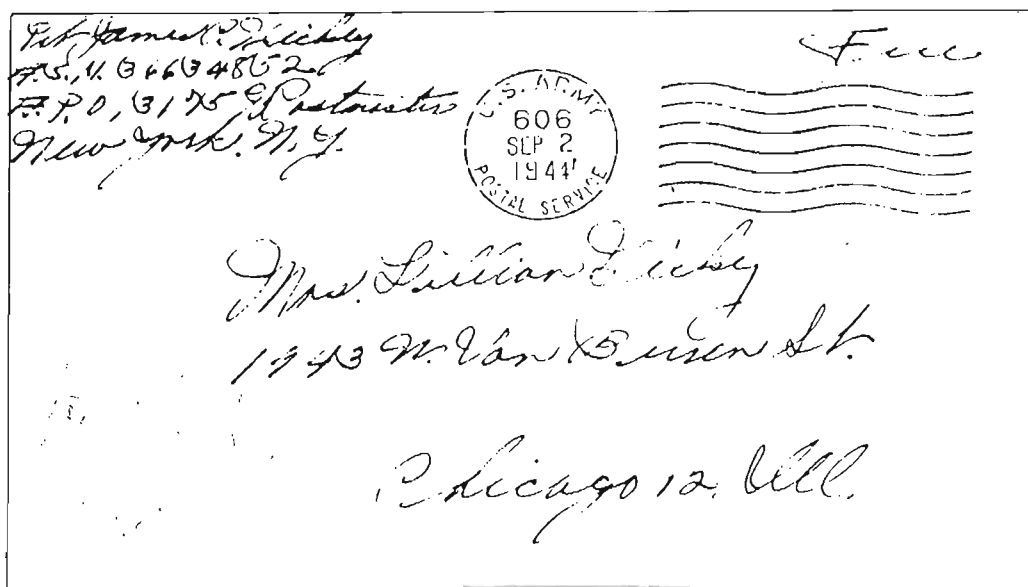 Pvt. James P. Hickey
A.S.N. 36634852
A.P.O. 3175, % Postmaster
New York. N.Y.
Free
U.S. ARMY
606
SEP 2
1944
POSTAL SERVICE
Mrs. Lillian Hickey
1943 W. Van Buren St.
Chicago 12. Ill.